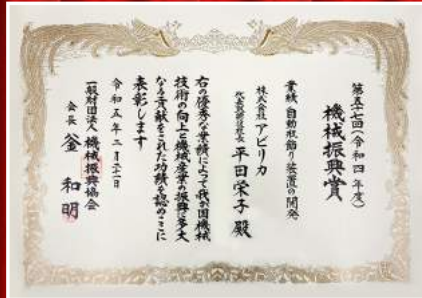 第五十七回(令和四年度)
機械振興賞
業績 自動瓶飾り装置の開発
株式会社 アビリカ
代表取締役社長 平田栄子 殿
右の優秀な業績によって我が国機械
技術の向上と機械産業の振興に多大
なる貢献をされた功績を認めここに
表彰します
令和五年二月二十一日
一般財団法人 機械振興協会
会長 釜 和明